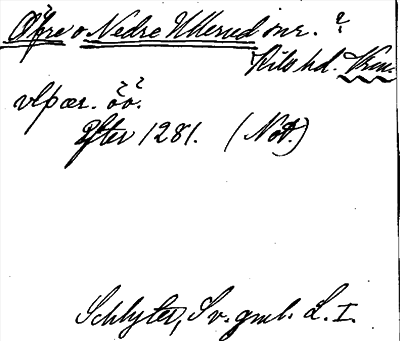 Øfre o Nedre Ullerud önr. ?
Kils hd. Vrm.
vlþær. öö. ? ?
Efter 1281. (Not.)
Schlyter, Sv. gml. L. I.